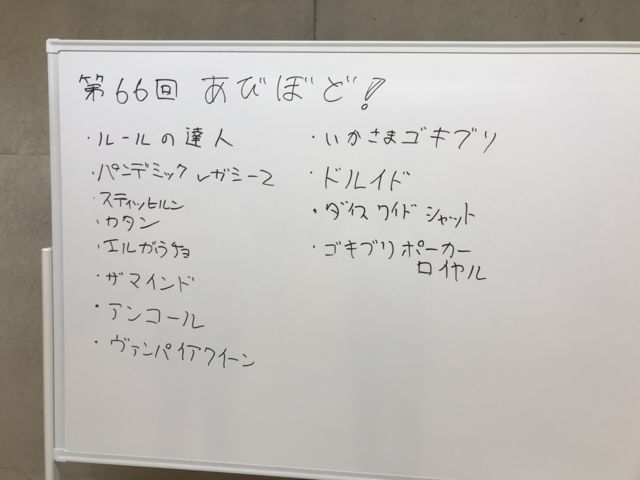 第66回 あびぼど!
・ルールの達人
・パンデミック レガシー2
・スティッヒルン
・カタン
・エルガウチョ
・ザマインド
・アンコール
・ヴァンパイアクイーン
・いかさまゴキブリ
・ドルイド
・ダイス ワイド シャット
・ゴキブリポーカー
ロイヤル